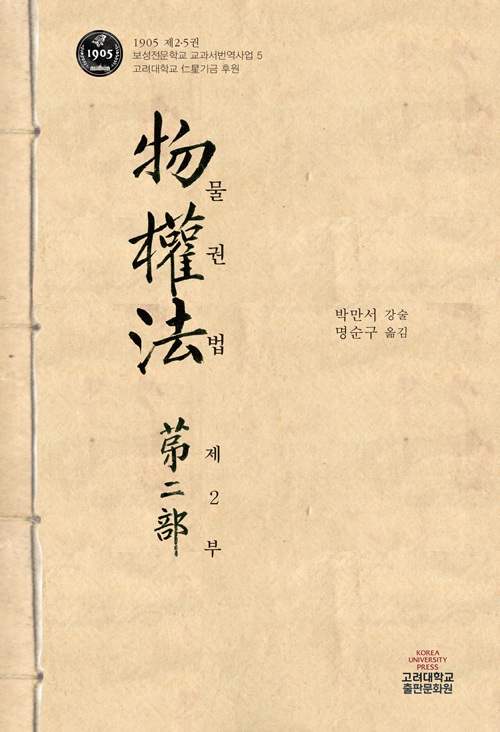 1905
1905 제2·5권
보성전문학교 교과서번역사업 5
고려대학교 仁星기금 후원
物權法
물권법
第二部
제2부
박만서 강술
명순구 옮김
KOREA
UNIVERSITY
PRESS
고려대학교
출판문화원